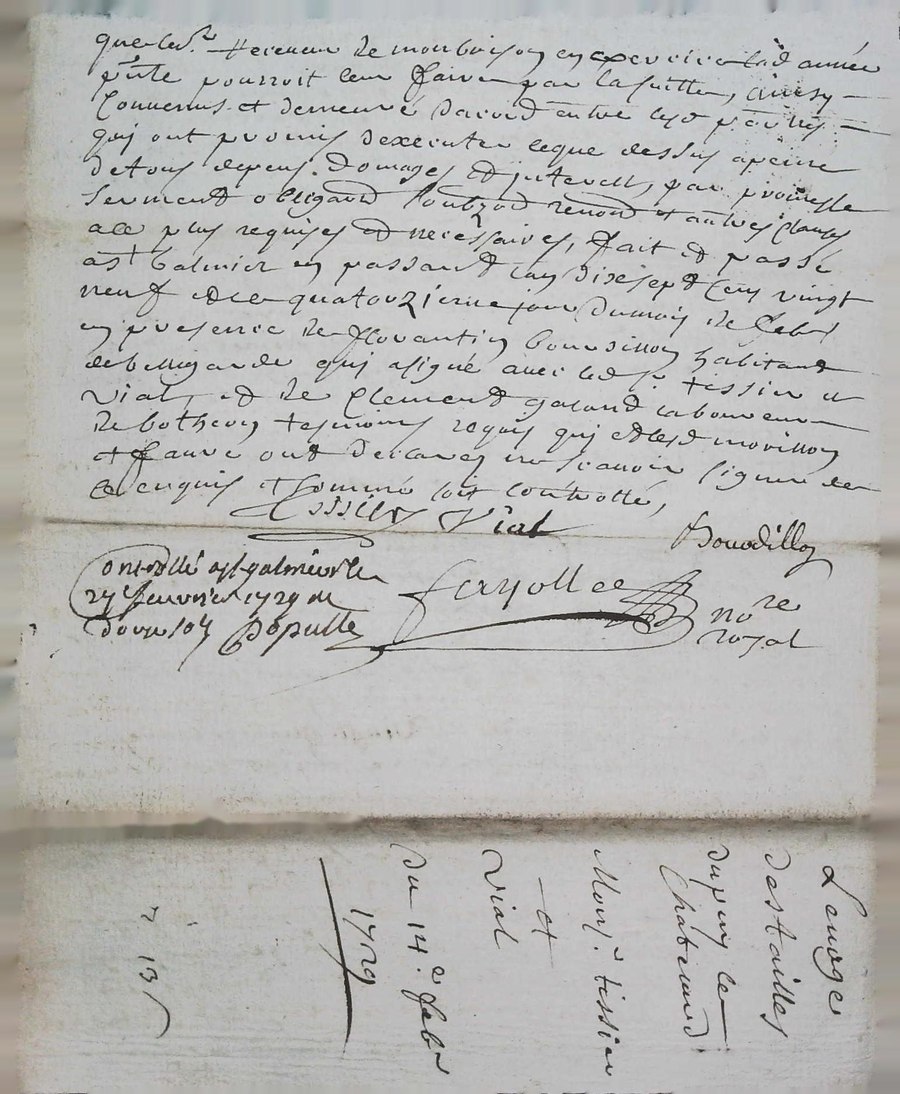 que led. sr Receveur de monbrison en exercice lad année
pnte pourroit leur faire par la suitte, ainsy
Convenus et demeuré dacord entre lesd parties
qui ont promis dexecuter ceque dessus apeine
detous depens domages et interests, par promesse
serment obligaõn renonõn et autres clauses
ace plus requises et necessaires, fait et passé
a st galmier en passant lan dix sept cens vingt
neuf et le quatorzieme jour du mois de febvr
en presence de florantin bourdillon habitant
de bellegarde qui asigné avec led sr tessier et
vial, et de Clement galand laboureur
de botheon tesmoins requis qui et lesd morillon
et faure ont declarez ne scavoir signer de
ce enquis et sommé soit controllé,
Tessier Vial
Bourdillon
Controllé a st galmier le
27e fevrier 1729 R
douze sols Depulle
fayolle nore
royal
Lenoge
destailles
dupuy le
Chateaud
Monsr tissier
et
vial
du 14e febr
1729
13 s